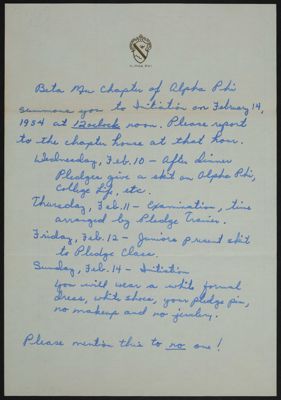 ALPHA PHI
Beta Mu Chapter of Alpha Phi
summons you to Initiation on February 14,
1954 at 12 o'clock noon. Please report
to the chapter house at that hour.
Wednesday, Feb. 10 - After dinner
Pledges give a skit on Alpha Phi,
College life, etc.
Thursday, Feb. 11 - Examination, time
arranged by Pledge Trainer.
Friday, Feb. 12 - Juniors present skit
to Pledge Class.
Sunday, Feb. 14 - Initiation
You will wear a white formal
dress, white shoes, your pledge pin,
no makeup and no jewelry.
Please mention this to no one!